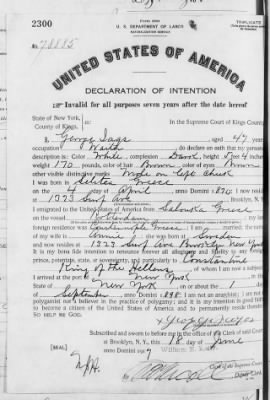 2300
Form 2203
U. S. DEPARTMENT OF LABOR
NATURALIZATION SERVICE
TRIPLICATE
No. 78885
UNITED STATES OF AMERICA
DECLARATION OF INTENTION
Invalid for all purposes seven years after the date hereof
State of New York,
County of Kings,
In the Supreme Court of Kings County.
I, George, aged 47 years,
occupation Waiter, do declare on oath that my personal
description is: Color White, complexion Dark, height 5 feet 4 inches,
weight 170 pounds, color of hair Brown, color of eyes Brown
other visible distinctive marks Mole on left cheek
I was born in Greece
on the 4 day of April, anno Domini 1870; I now reside
at 1223 Surf Ave, Brooklyn, N.Y.
I emigrated to the United States of America from Greece
on the vessel; my last
foreign residence was Greece; I am married; the name
of my wife is Annie; she was born in Sweden
and now resides at 1223 Surf Ave Brooklyn New York
It is my bona fide intention to renounce forever all allegiance and fidelity to any foreign
prince, potentate, state, or sovereignty, and particularly to Constantine
King of the Hellenes, of whom I am now a subject;
I arrived at the port of New York, in the
State of New York, on or about the 1 day
of September, anno Domini 1898; I am not an anarchist; I am not a
polygamist nor a believer in the practice of polygamy; and it is my intention in good faith
to become a citizen of the United States of America and to permanently reside therein:
SO HELP ME GOD.
x George
Subscribed and sworn to before me in the office of the Clerk of said Court
at Brooklyn, N. Y., this 18 day of June
anno Domini 1917
[SEAL.]